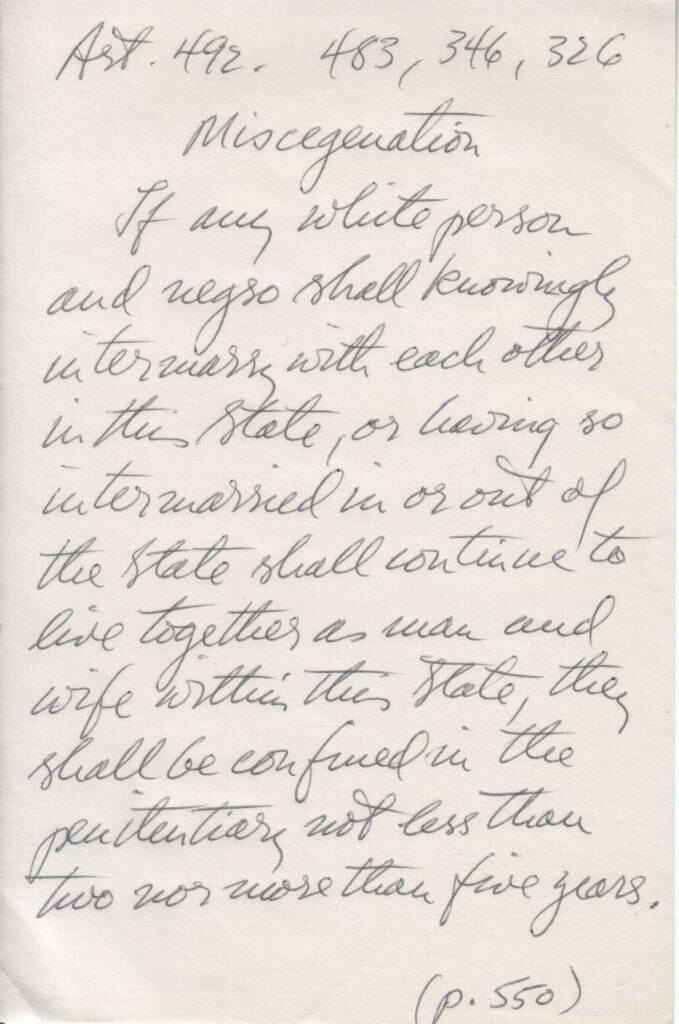 Art. 492. 483, 346, 326
Miscegenation
If any white person
and negro shall knowingly
intermarry with each other
in this State, or having so
intermarried in or out of
the State shall continue to
live together as man and
wife within this State, they
shall be confined in the
penitentiary not less than
two nor more than five years.
(p. 550)